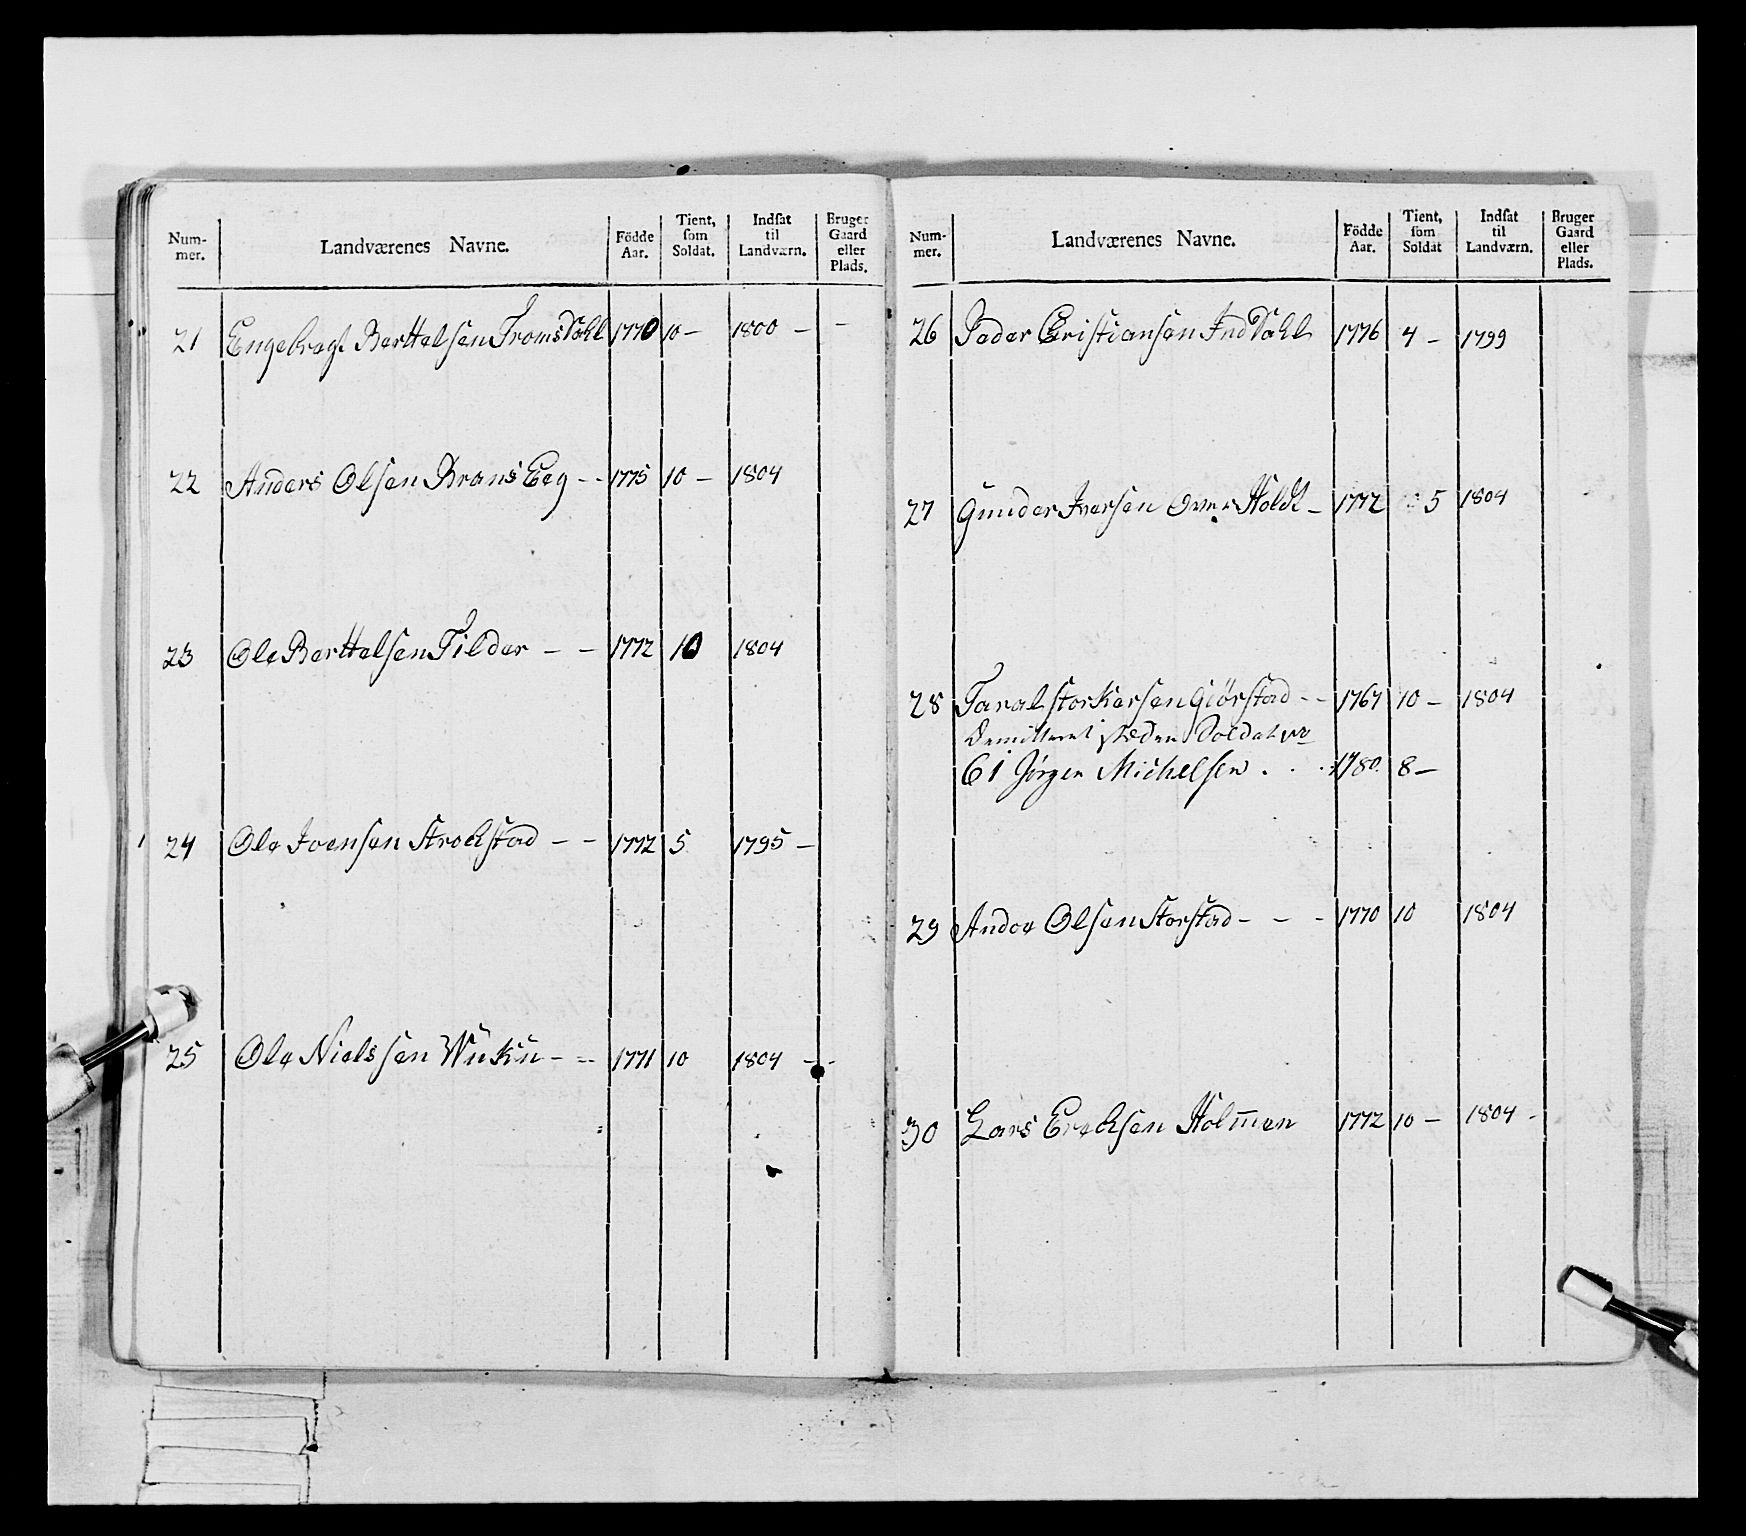 Num-
mer.
Landværenes Navne.
Födde
Aar.
Tient,
som
Soldat.
Indsat
til
Landværn.
Bruger
Gaard
eller
Plads.
21 Engebregt Berttelsen Tromsdahl 1770 10 – 1800 – –
22 Anders Olsen Brans Eeg – – 1775 10 – 1804
23 Ole Berttelsen Tilder – – 1772 10 1804
24 Ole Joensen Strochstad – – 1772 5 1795 –
25 Ole Nielssen Wuku – – 1771 10 1804 –
Num-
mer.
Landværenes Navne.
Födde
Aar.
Tient,
som
Soldat
Indsat
til
Landværn.
Bruger
Gaard
eller
Plads.
26 Peder Cristiansen Indahl 1776 4 – 1799
27 Gunder Iversen Over Holdt – 1772 5 1804
28 Taral Storkersen Giörstad – – 1767 10 – 1804
Demitteret i steden Soldat
61 Jörgen Michelsen . . . 1780. 8 –
29 Andor Olsen Storstad – – – 1770 10 1804
30 Lars Erechsen Holmen 1772 10 – 1804 –